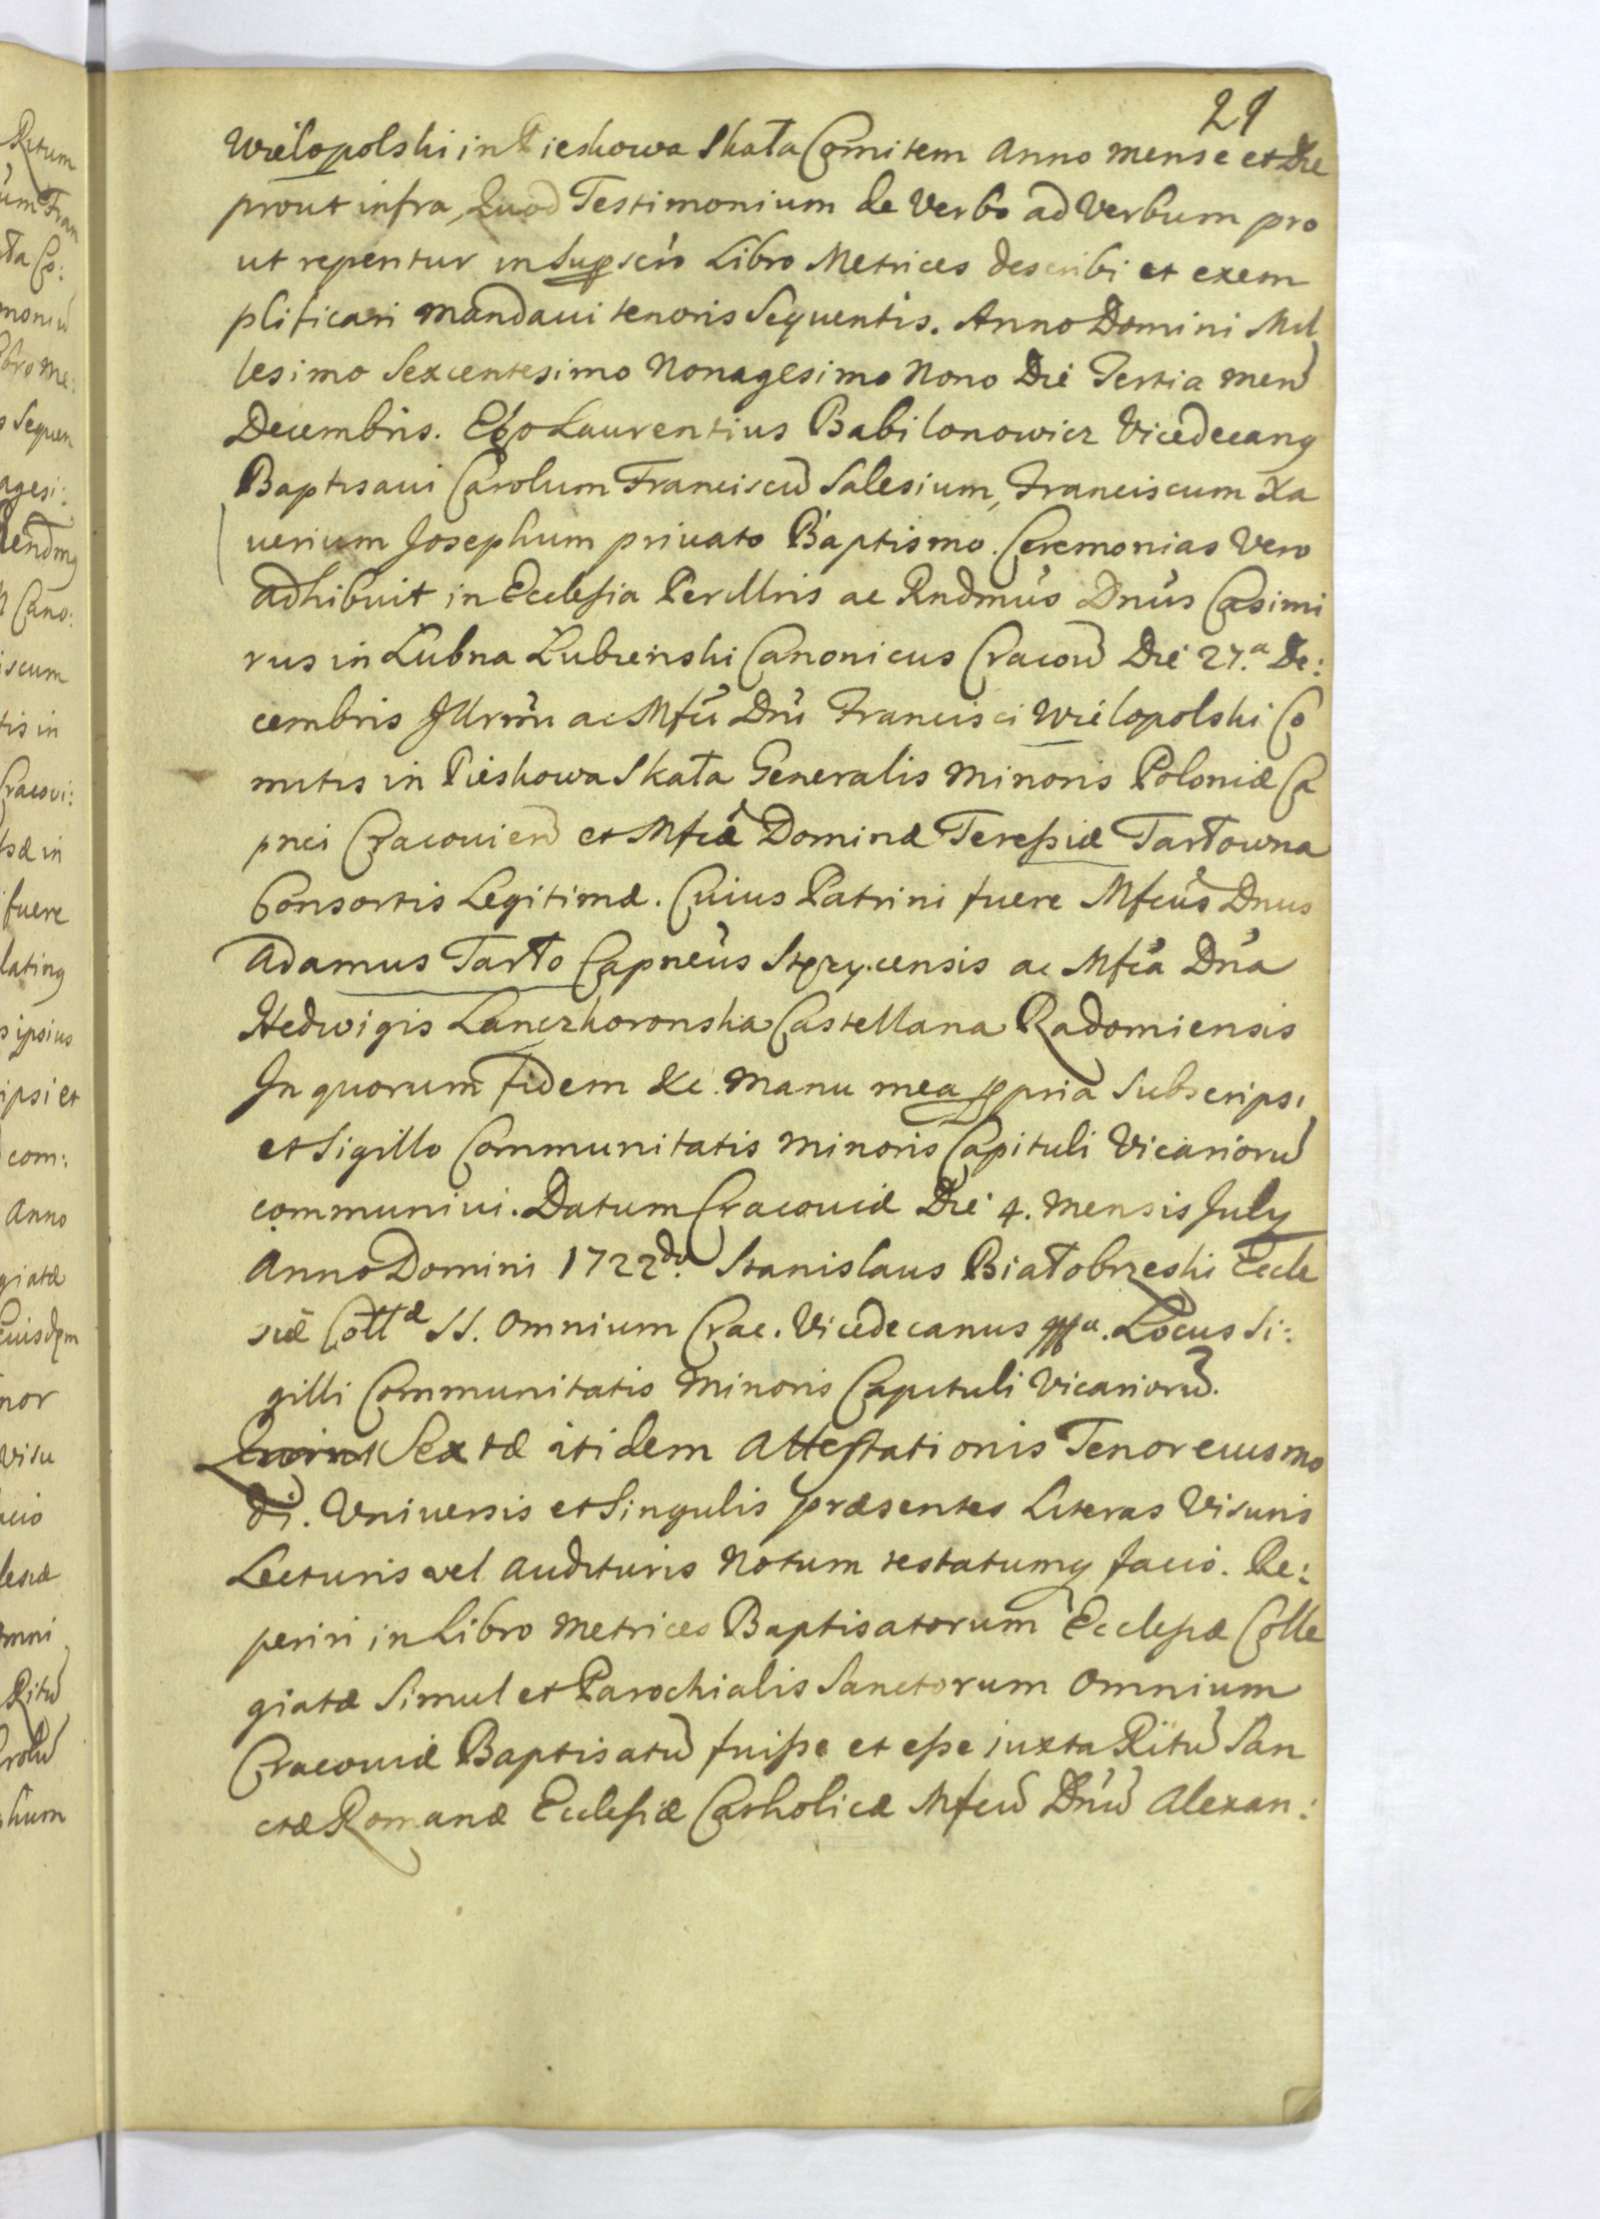 21
Wielopolski in Pieskowa Skała Comitem Anno mense et Die
prout infra, Quod Testimonium de Verbo ad Verbum pro
ut reperitur in Suprscrõ Libro Metrices describi et exem
plificari mandaui tenoris Sequentis. Anno Domini Mil
lesimo Sexcentesimo Nonagesimo Nono Die Tertia men
Decembris. Ego Laurentius Babilonowicz Vicedecang
Baptisaui Carolum Franciscũ Salesium, Franciscum Xa
uerium Josephum priuato Baptismo. Ceremonias Vero
adhibuit in Ecclesia Perillris ac Rndmus Dnus Casimi
rus in Łubna Łubienski Canonicus Cracoũ Die 27.a De:
cembris Jllrmi ac Mfci Dni Francisci Wielopolski Co
mitis in Pieskowa Skała Generalis Minoris Poloniæ Ca
pnei Cracouien et Mfcæ Dominæ Teressiæ Tarłowna
Consortis Legitimæ. Cuius Patrini fuere Mfcus Dnus
Adamus Tarło Capneus Stęzycensis ac Mfca Dna
Hedwigis Lanczkoronska Castellana Radomiensis
Jn quorum fidem &c. Manu mea ppria Subscripsi
et Sigillo Communitatis minoris Capituli Vicariorũ
communiui. Datum Cracouiæ Die 4. Mensis July
Anno Domini 1722do. Stanislaus Białobrzeski Eccle
siæ Collæ SS. Omnium Crac. Vicedecanus Locus Si:
gilli Communitatis Minoris Capituli Vicariorũ.
Quint Sextæ itidem Attestationis Tenor euismo
di. Vniuersis et Singulis præsentes Literas Visuris
Lecturis vel Audituris Notum testatumq facio. Re:
periri in Libro Metrices Baptisatorum Ecclesiæ Colle
giatæ Simul et Parochialis Sanctorum Omnium
Cracouiæ Baptisatũ fuisse et esse iuxta Ritũ San
ctæ Romanæ Ecclesiæ Catholicæ Mfcũ Dnũ Alexan: